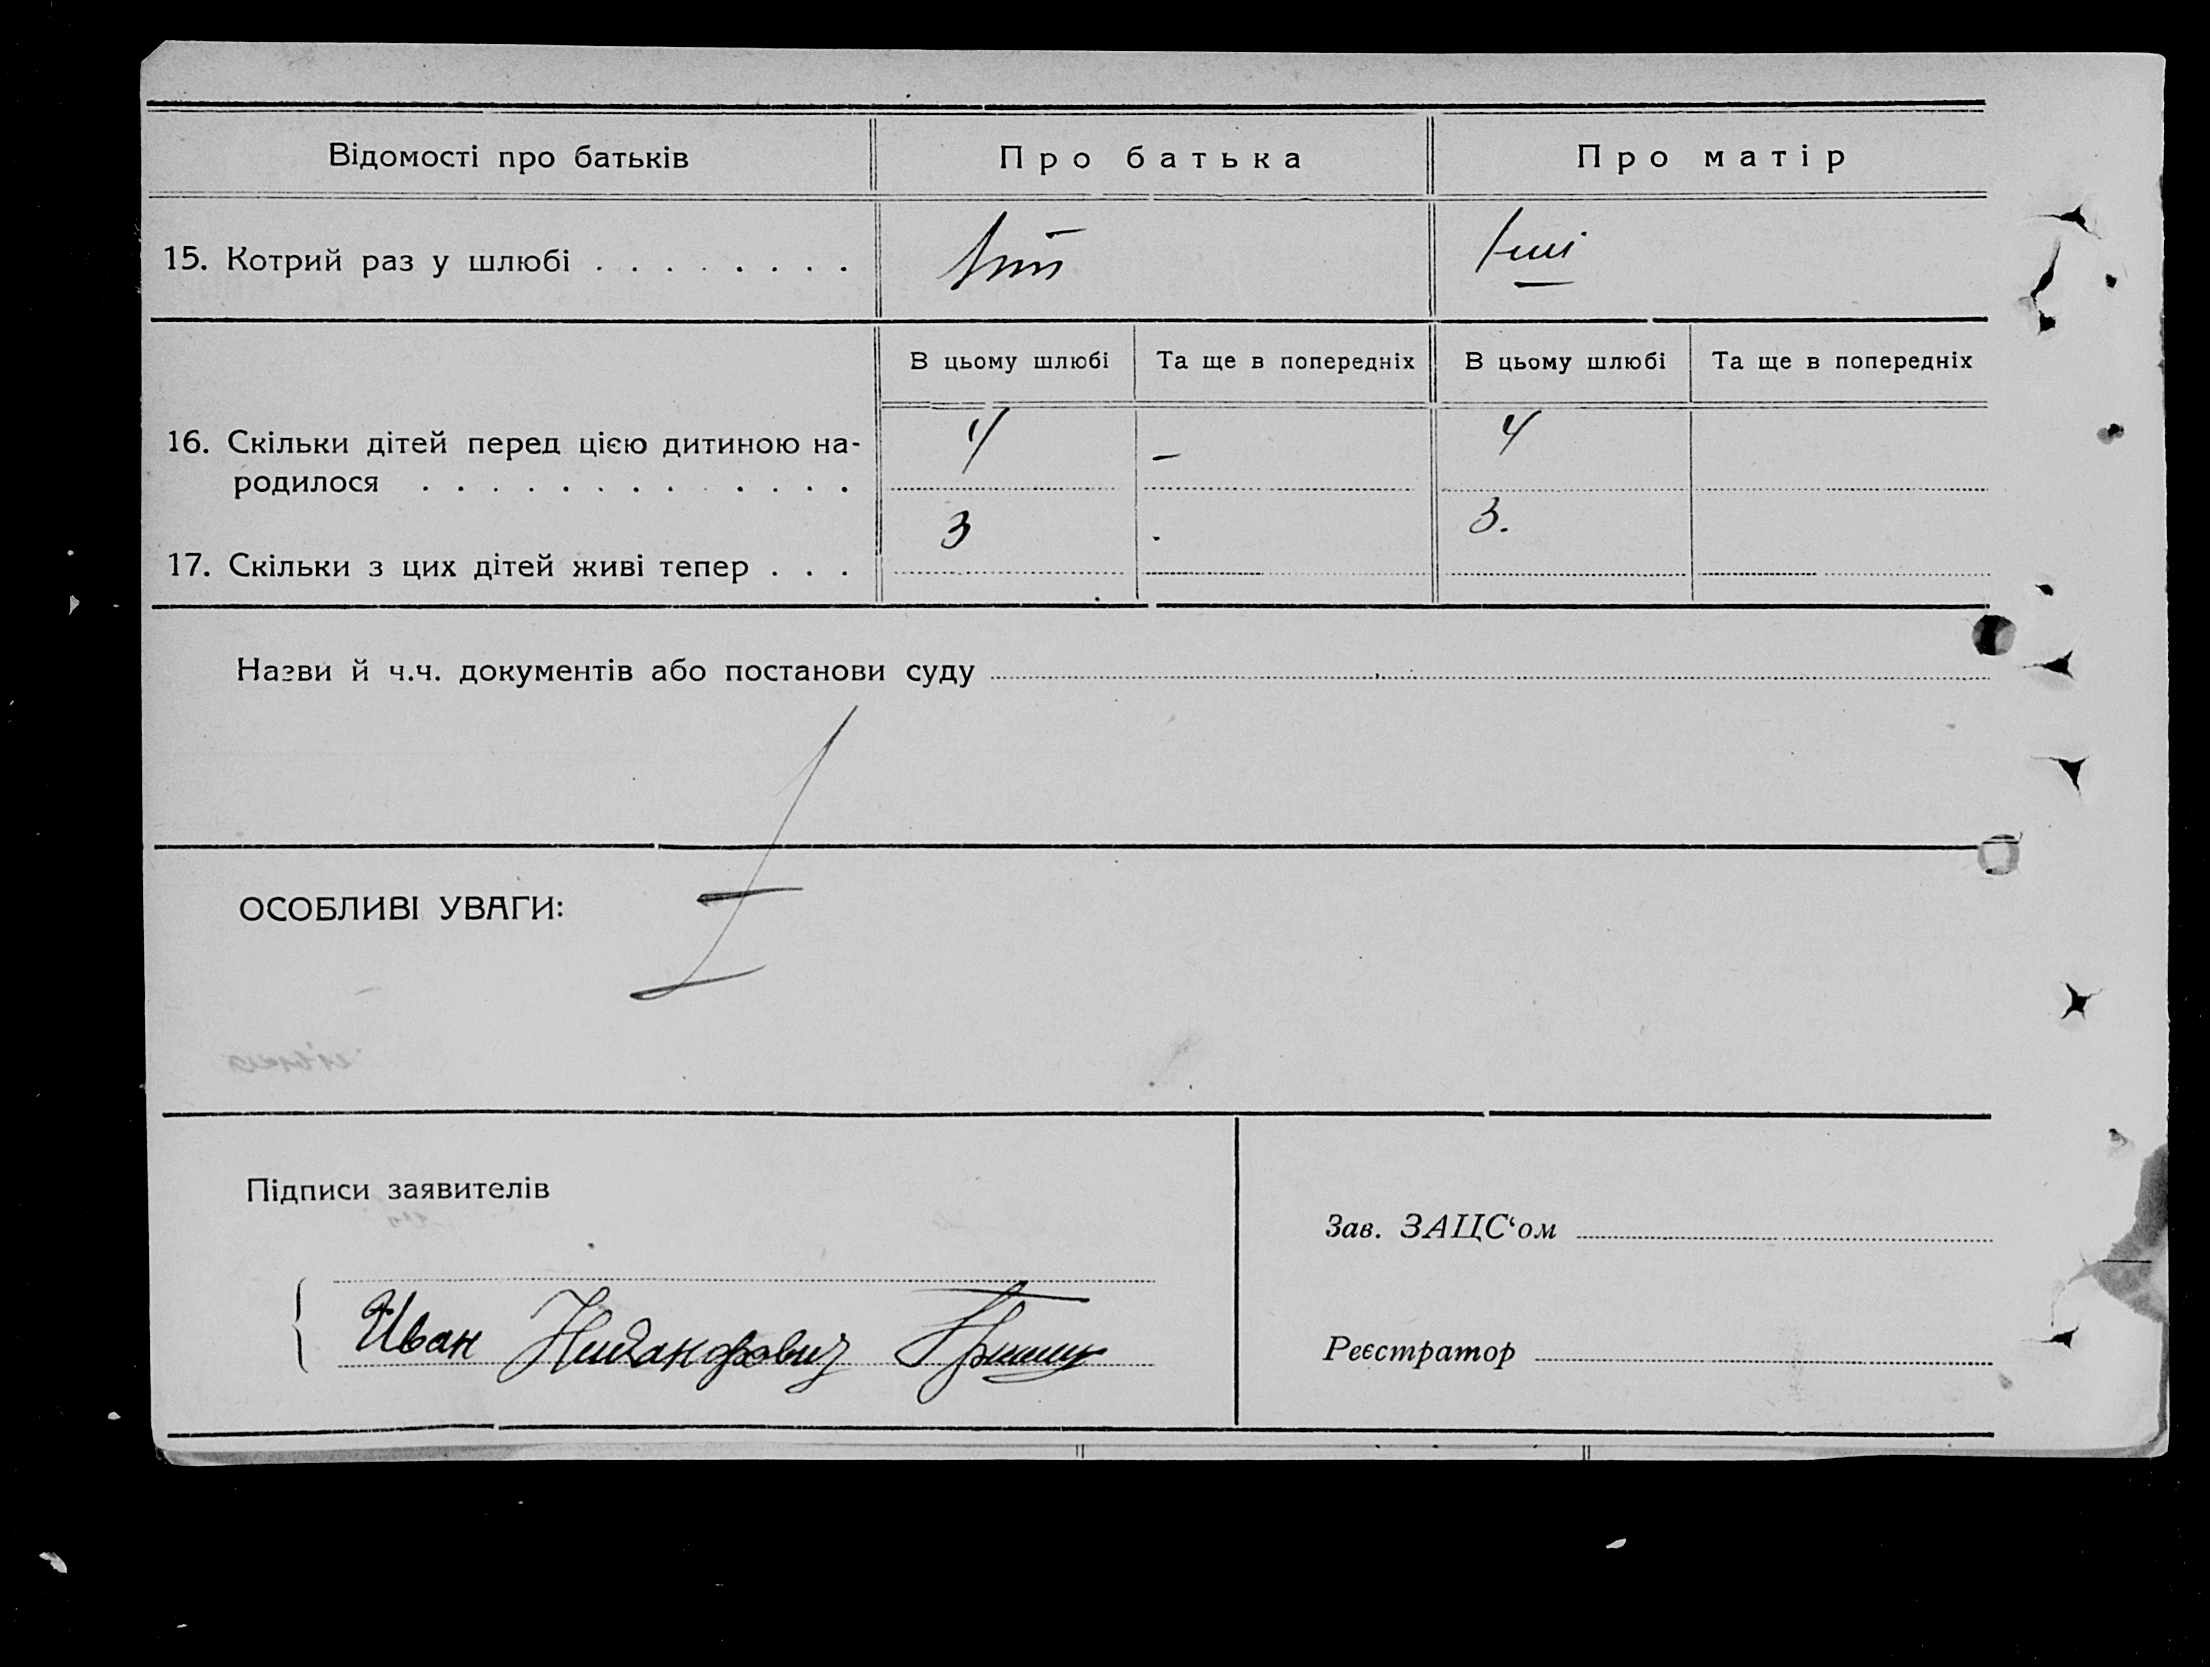 Відомості про батьків
Про батька
Про матір
15. Котрий раз у шлюбі . . . . . . . .
В цьому шлюбі
Та ще в попередніх
В цьому шлюбі
Та ще в попередніх
16. Скільки дітей перед цією дитиною на-
родилося . . . . . . . . . . . . .
4 - 4
17. Скільки з цих дітей живі тепер . . .
3 . 3.
Назви й ч.ч. документів або постанови суду
ОСОБЛИВІ УВАГИ:
Підписи заявителів
Иван
Зав. ЗАЦС‘ом
Реєстратор